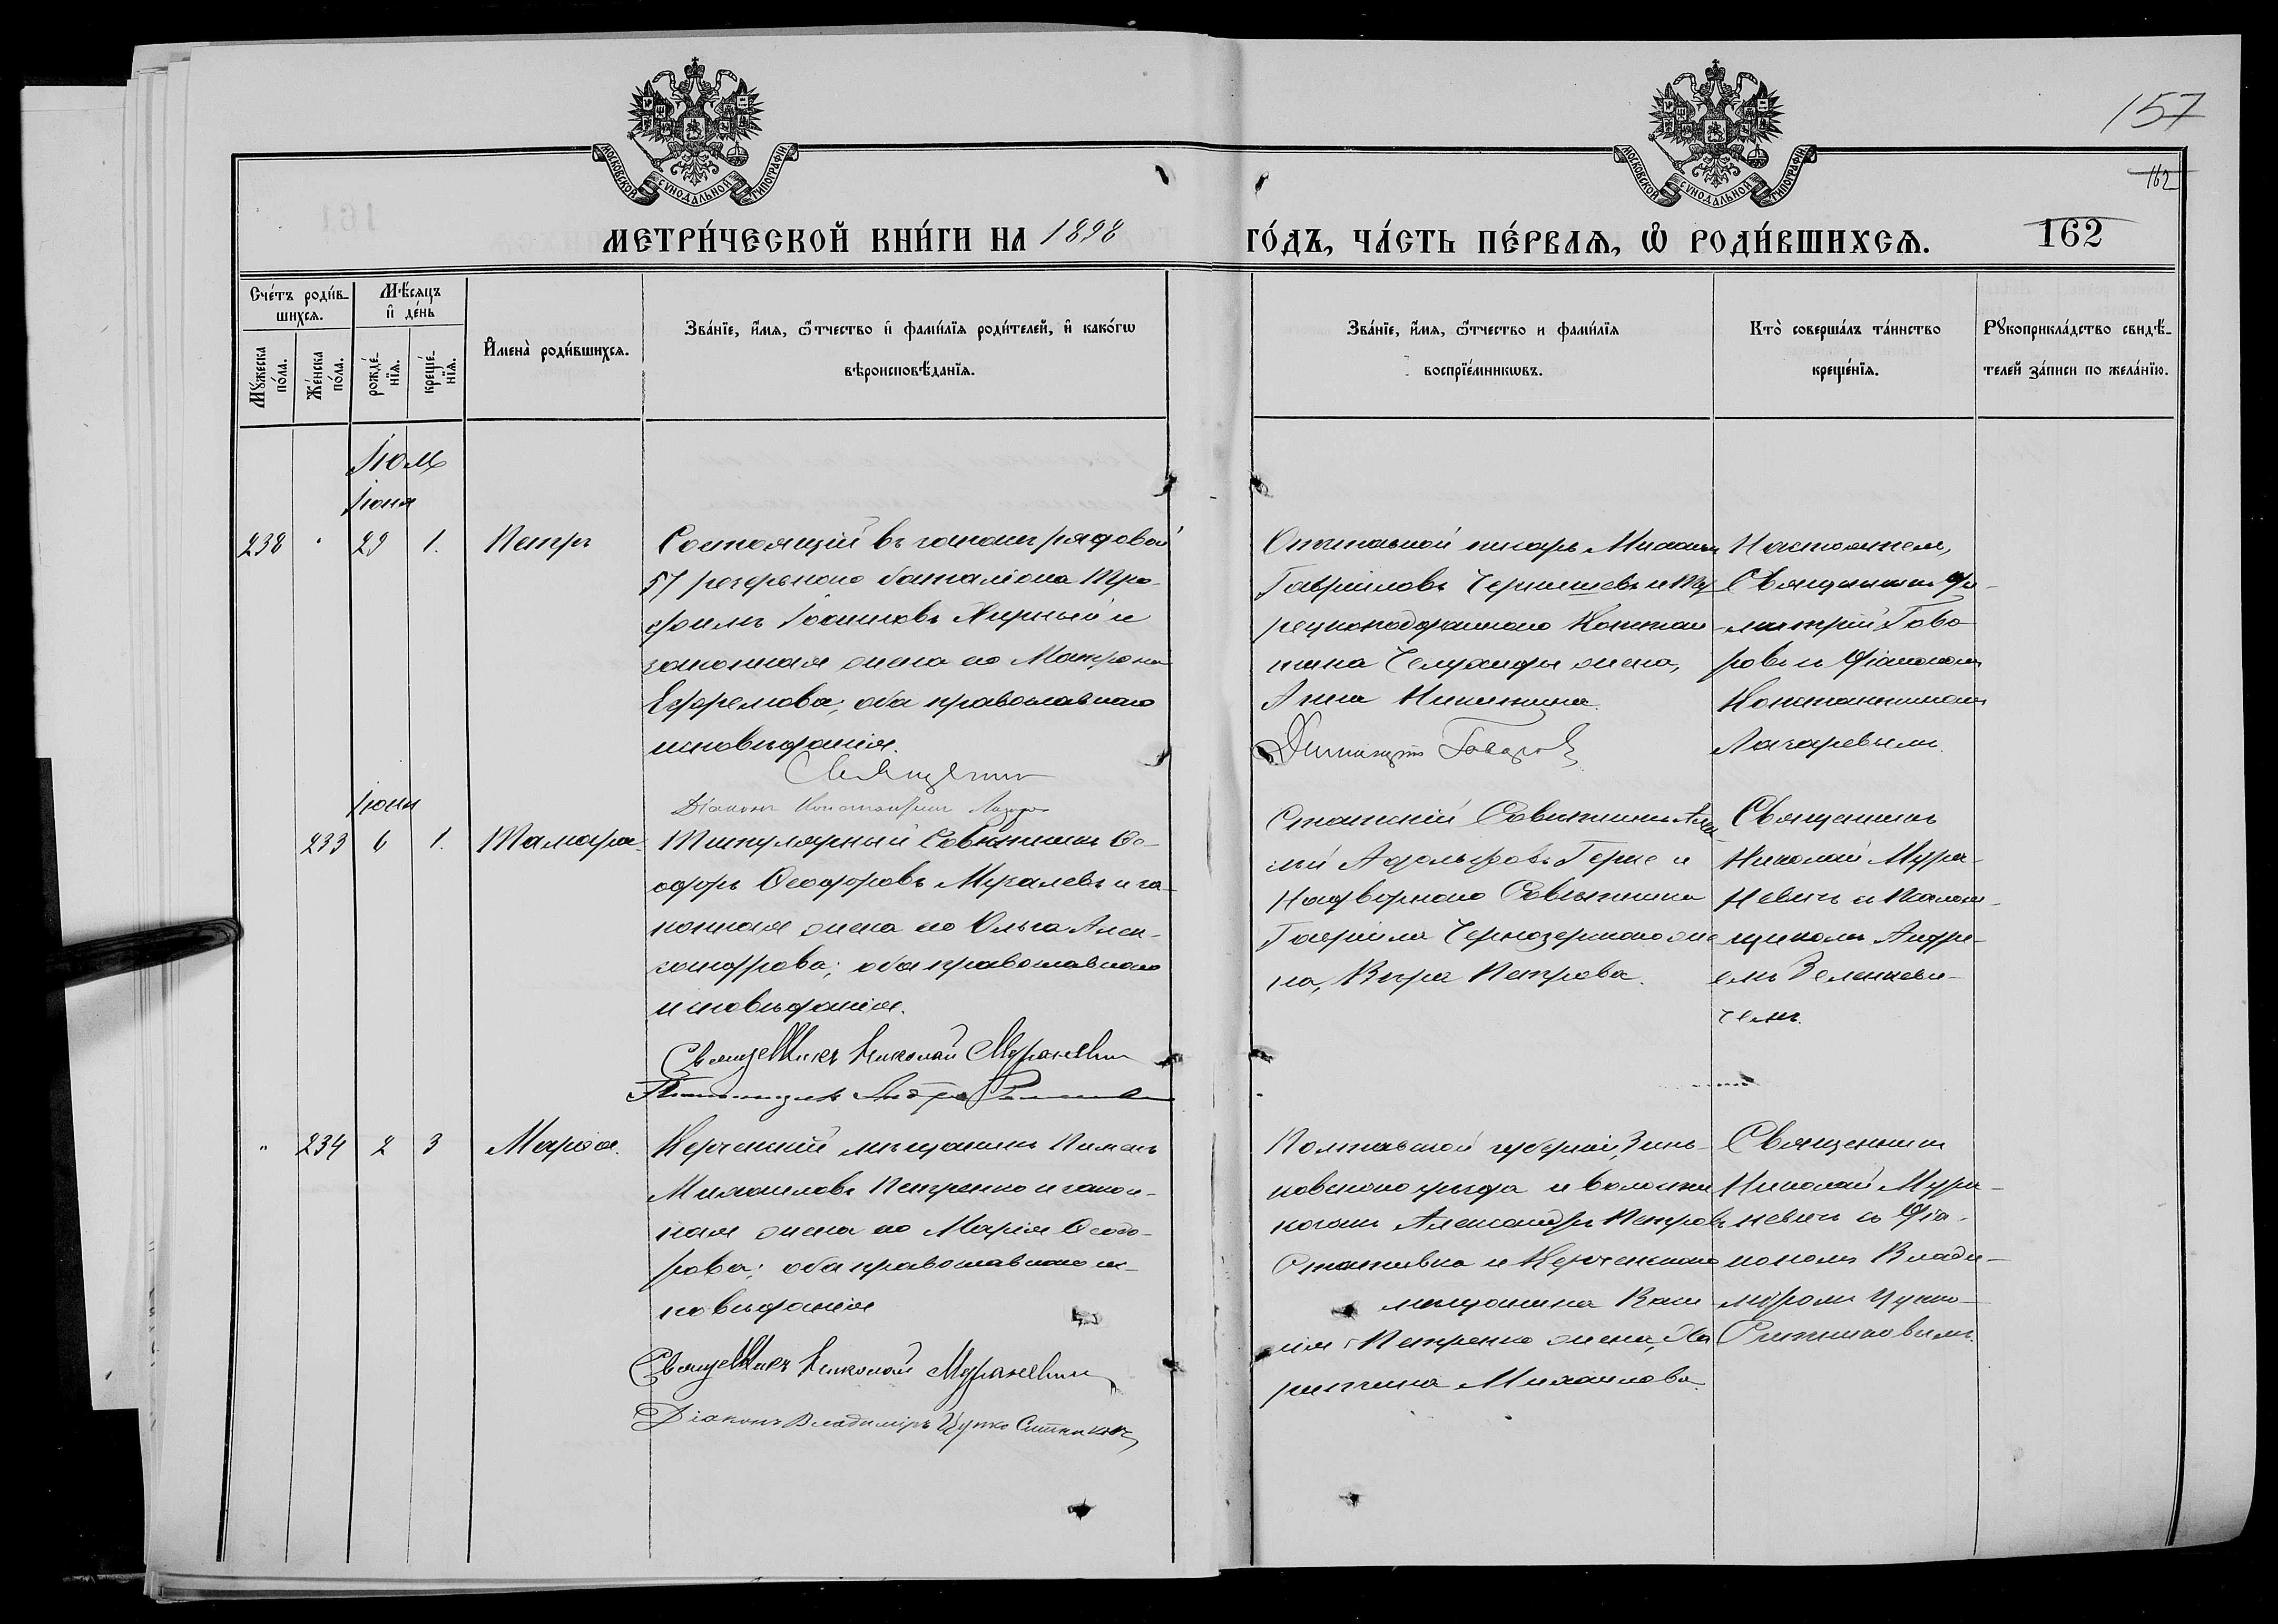 157
162
162
МОСКОВСКОЙ СѴНОДАЛЬНОЙ ТИПОГРАФІИ
МОСКОВСКОЙ СѴНОДАЛЬНОЙ ТИПОГРАФІИ
МЕТРИ́ЧЕСКОЙ КНИ́ГИ НА 1898 ГО́ДЪ, ЧА́СТЬ ПЕ́РВАѦ, Ѡ҆ РОДИ́ВШИХСѦ.
Сче́тъ роди́в-
шихсѧ.
Мѣ́сѧцъ
и҆ де́нь
Мꙋ́жеска
по́ла.
Же́нска
по́ла.
рожде́-
нїѧ.
креще́-
нїѧ.
И҆мена̀ роди́вшихсѧ.
Зва́нїе, и҆́мѧ, ѻ҆́тчество и҆ фами́лїѧ роди́телей, и҆ како́гѡ
вѣроисповѣ́данїѧ.
Зва́нїе, и҆́мѧ, ѻ҆́тчество и фами́лїѧ
воспрїе́мникѡвъ.
Кто̀ соверша́лъ та́инство
креще́нїѧ.
Рꙋкоприкла́дство свидѣ́-
телей за́писи по жела́нїю.
Іюль
Іюня
238 " 29 1. Петръ
Состоящій въ запасѣ рядовой
57 резервного баталіона Тро-
фимъ Іоанновъ Жирный и
законная жена его Матрона
Ефремова; оба православнаго
исповѣданія.
Священникъ
Діаконъ Константинъ Лазарев
Отставной писарь Михаилъ
Гавриловъ Чернышевъ и Ту
рецкоподданнаго Констан
тина жена,
Анна Никитина.
Димитрій Говоровъ
Настоятель,
Священникъ Ди-
митрій Гово
ровъ и Діаконом
Константиномъ
Лазаревымъ.
Іюня
233 6 1. Тамара.
Титулярный Совѣтникъ Ѳе-
одоръ Ѳеодоровъ Мугалевъ и за-
конная жена его Ольга Алек-
сандрова; оба православнаго
исповѣданія.
Священникъ Николай Мураневичъ
Псаломщикъ Андрей
Статскій Совѣтникъ
Адольфовъ Герце и
Надворнаго Совѣтника
Гавріила Чернозернаго же
на, Вѣра Петрова.
Священникъ
Николай Мура-
невичъ съ Псалом-
щикомъ Андре-
емъ Зеленкеви-
чемъ.
" 234 2 3 Марія.
Керченскій мѣщанинъ Романъ
Михаиловъ Петренко и закон-
ная жена его Марія Ѳеодо-
рова; оба православнаго ис-
повѣданія
Священникъ Николай Мураневичъ
Діаконъ Владиміръ Цушко Ситниковъ
Полтавской губерніи, Зинь-
ковскаго уѣзда и волости
козакъ Александръ Петровъ
и Керченскаго
мѣщанина Васи
лія Петренко жена, Ха
ритина Михаилова.
Священникъ
Николай Мура-
невичъ съ Діа-
кономъ Влади-
міромъ Цушко-
Ситниковымъ.